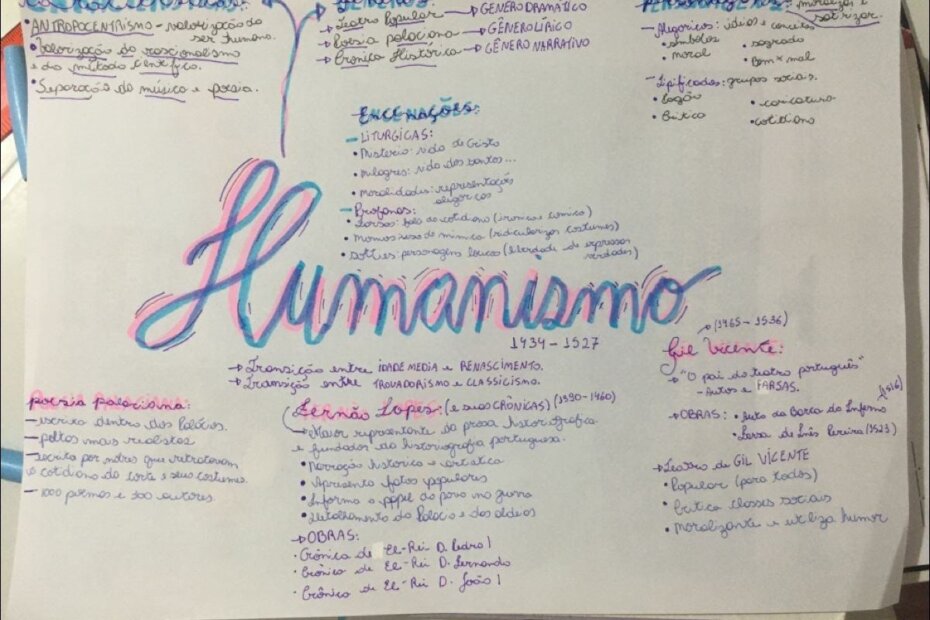 ANTROPOCENTRISMO - valorização do
ser humano.
• Valorização do racionalismo
e do método científico.
• Separação da música e poesia.
→ Teatro Popular → GÊNERO DRAMÁTICO
→ Poesia palaciana → GÊNERO LÍRICO
→ Crônica Histórica → GÊNERO NARRATIVO
satirizar.
- Alegóricos: ideias e conceitos
• símbolos
• sagrado
• moral
• Bem x mal
- Tipificados: grupos sociais.
• caricatura
• Crítica
• cotidiano
Encenações:
- LITÚRGICAS:
• Mistério: vida de Cristo
• Milagres: vida dos santos...
• Moralidades: representações
alegóricas
- Profanas:
• Farsas: fala do cotidiano (irônico e cômico)
• Momos: uso de mímica (ridicularizar costumes)
• sotties: personagens loucos (liberdade de expressar
verdades)
Humanismo
1434 - 1527
→ Transição entre IDADE MEDIA e RENASCIMENTO.
→ Transição entre TROVADORISMO e CLASSICISMO.
poesia palaciana:
- escrita dentro dos Palácios.
- poetas mais realistas
- escrita por nobres que retratavam
o cotidiano da corte e seus costumes.
- 1000 poemas e 200 autores
Fernão Lopes: (e suas CRÔNICAS) (1390-1460)
→ Maior representante da prosa historiográfica
e fundador da historiografia portuguesa.
• Narração histórica e artística
• Apresenta fatos populares
• Informa o papel do povo na guerra
• Detalhamento do Palácio e das aldeias
→ OBRAS:
• Crônica de El-Rei D. Pedro I
• Crônica de El-Rei D. Fernando
• Crônica de El-Rei D. João I
(1465 - 1536)
Gil Vicente:
→ "O pai do teatro português"
- Autos e FARSAS.
→ OBRAS: • Auto da Barca do Inferno
• Farsa de Inês Pereira (1523)
→ Teatro de GIL VICENTE
• Popular (para todos)
• Critica classes sociais
• Moralizante e utiliza humor